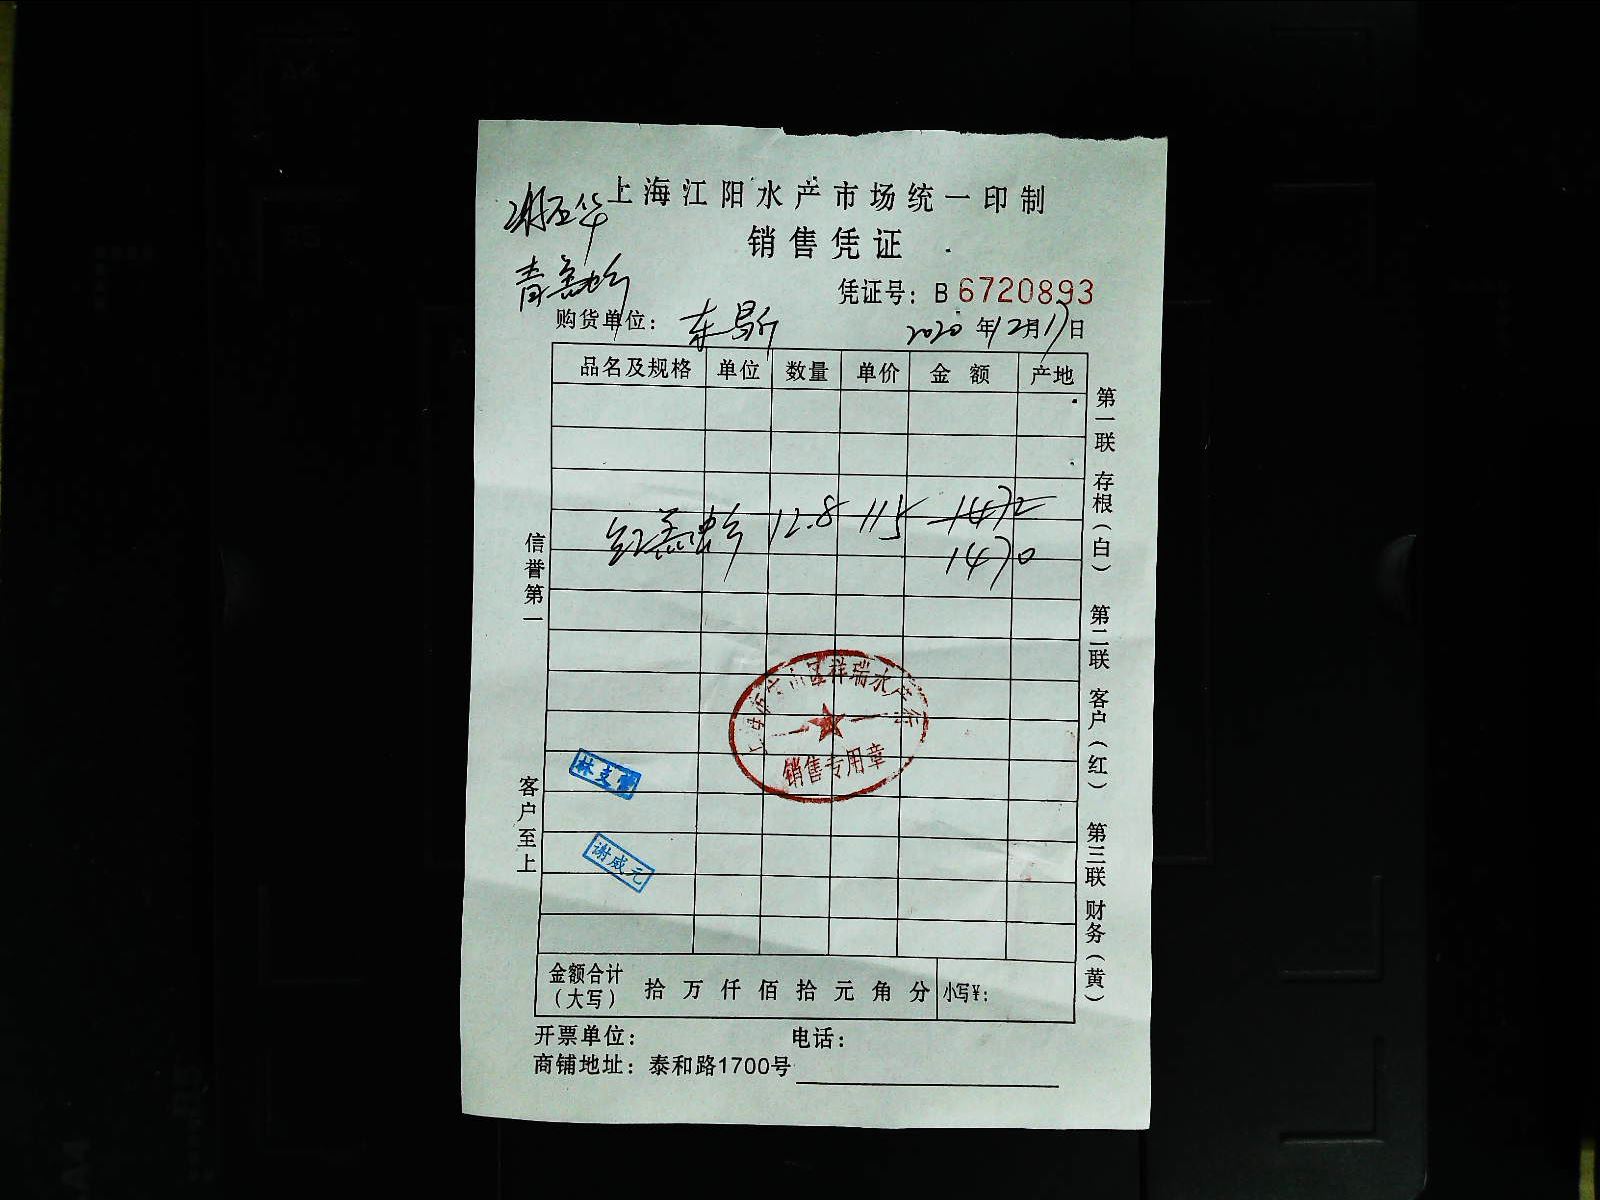 上海江阳水产市场统一印制
销售凭证
凭证号：B 6720893
购货单位：
2020年12月17日
品名及规格 单位 数量 单价 金额 产地
12.8 115 1472
1470
信誉第一
客户至上
第一联 存根（白） 第二联 客户（红） 第三联 财务（黄）
上海市宝山区祥瑞水产行
销售专用章
谢成元
金额合计（大写） 拾 万 仟 佰 拾 元 角 分 小写¥：
开票单位： 电话：
商铺地址：泰和路1700号